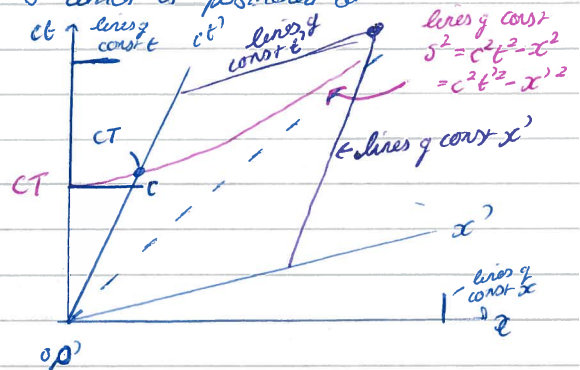 ct
lines of
const t
ct'
lines of
const t'
lines of const
s² = c²t² - x²
= c²t'² - x'²
CT
lines of const x'
CT
C
x'
lines of
const x
x
0,0'